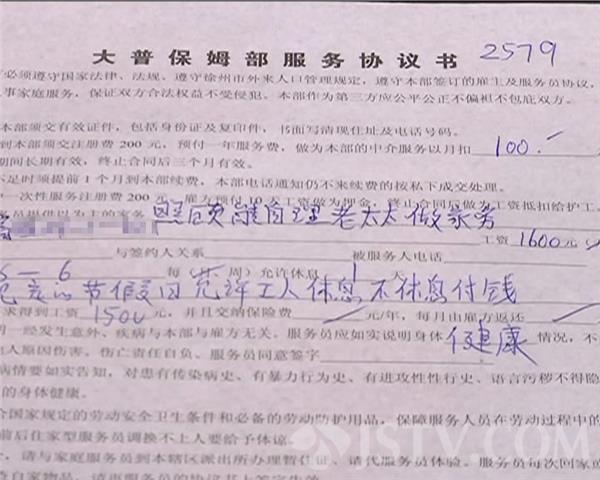 大普保姆部服务协议书 2579
必须遵守国家法律、法规、遵守徐州市外来人口管理规定，遵守本部签订的雇主及服务员协议，
事家庭服务，保证双方合法权益不受侵犯。本部作为第三方应公平公正不偏袒不包庇双方。
本部须交有效证件，包括身份证及复印件，书面写清现住址及电话号码。
到本部须交注册费 200 元，预付一年服务费，做为本部的中介服务以月扣 100.
期间长期有效，终止合同后三个月有效。
不足时须提前 1 个月到本部续费，本部电话通知仍不来续费的按私下成交处理。
一次性服务注册费 200 雇方预付 10 工资做为押金，终止合同后做为工资抵扣给护工。
员提供以为主的家务 照顾 自理老太太做家务
工资 1600 元
与签约人关系 被服务人电话
5－6 每（ 周）允许休息 1 天
节假日允许工人休息不休息付钱
求得到工资 1500 元，并且交纳保险费 元/年，每月由雇方返还
切一经发生意外、疾病与本部与雇方无关。服务员应如实说明身体 健康 情况，不
人原因伤害，伤亡责任自负、服务员同意签字
病情要如实告知，对患有传染病史、有暴力行为史、有进攻性性行史、语言污秽不得隐
的身体健康。
合国家规定的劳动安全卫生条件和必备的劳动防护用品，保障服务人员在劳动过程中的
前后住家型服务员调换不上人要给予体谅。
，请与家庭服务员到本辖区派出所办理暂住证、请代服务员体检。服务员每次回家
自家物品，请再服务员的协议书上签字
JSTV.COM